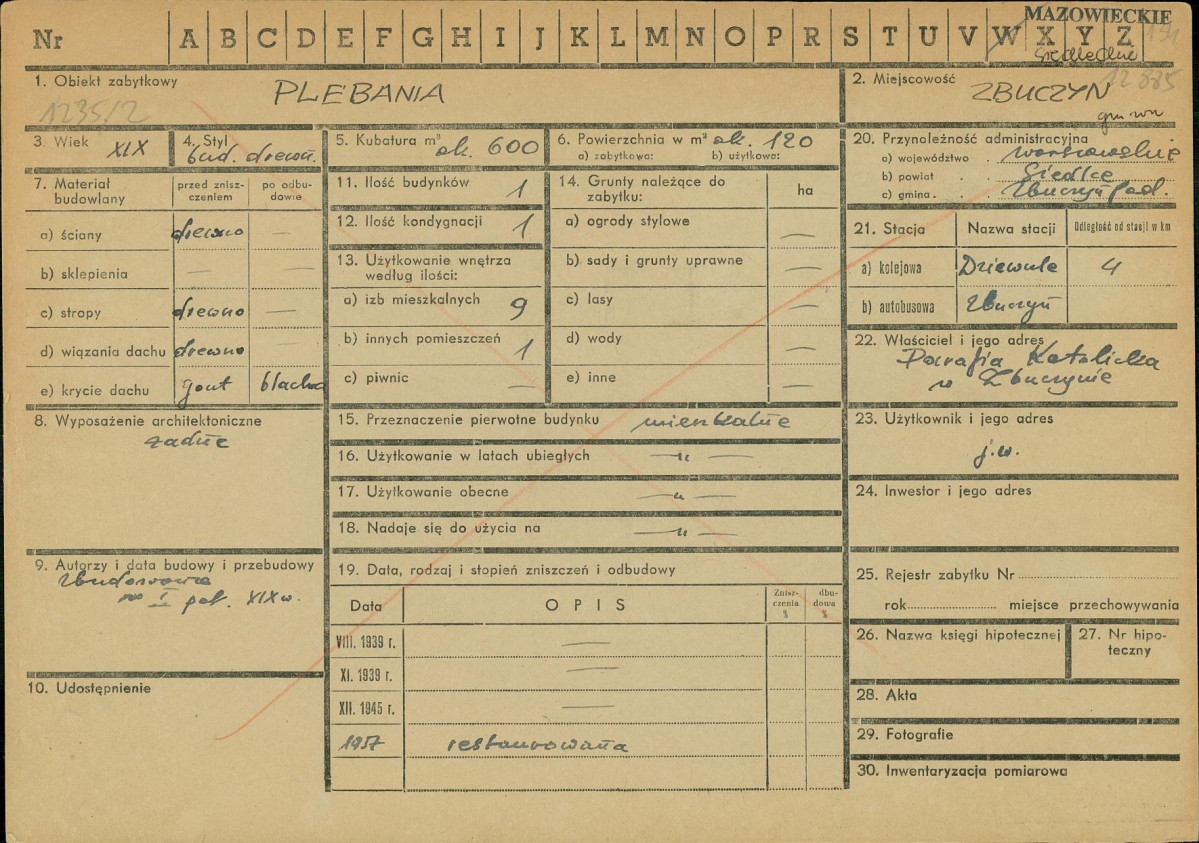 MAZOWIECKIE
Nr A B C D E F G H I J K L M N O P R S T U V W X Y Z
Siedleckie
1. Obiekt zabytkowy PLEBANIA
1235/2
2. Miejscowość ZBUCZYN
12 885
gm. wm
3. Wiek XIX
4. Styl
bud. drewn.
5. Kubatura m³ ok. 600
6. Powierzchnia w m² ok. 120
a) zabytkowa: b) użytkowa:
20. Przynależność administracyjna
a) województwo . warszawskie
b) powiat . . Siedlce
c) gmina . . . Zbuczyn Pod.
7. Materiał budowlany
przed znisz-
czeniem
po odbu-
dowie
a) ściany drewno —
b) sklepienia — —
c) stropy drewno —
d) wiązania dachu drewno
e) krycie dachu gont blacha
11. Ilość budynków 1
12. Ilość kondygnacji 1
13. Użytkowanie wnętrza
według ilości:
a) izb mieszkalnych 9
b) innych pomieszczeń 1
c) piwnic —
14. Grunty należące do
zabytku:
ha
a) ogrody stylowe —
b) sady i grunty uprawne —
c) lasy —
d) wody —
e) inne —
21. Stacja Nazwa stacji Odległość od stacji w km
a) kolejowa Dziewule 4
b) autobusowa Zbuczyn
22. Właściciel i jego adres
Parafia Katolicka
w Zbuczynie
8. Wyposażenie architektoniczne
żadne
15. Przeznaczenie pierwotne budynku mieszkalne
16. Użytkowanie w latach ubiegłych — " —
17. Użytkowanie obecne — " —
18. Nadaje się do użycia na — " —
23. Użytkownik i jego adres
j.w.
24. Inwestor i jego adres
9. Autorzy i data budowy i przebudowy
Zbudowana
w I poł. XIX w.
10. Udostępnienie
19. Data, rodzaj i stopień zniszczeń i odbudowy
Data OPIS Znisz-
czenia
% dbu-
dowa
%
VIII. 1939 r. —
XI. 1939 r. —
XII. 1945 r. —
1957 restaurowana
25. Rejestr zabytku Nr
rok miejsce przechowywania
26. Nazwa księgi hipotecznej
27. Nr hipo-
teczny
28. Akta
29. Fotografie
30. Inwentaryzacja pomiarowa